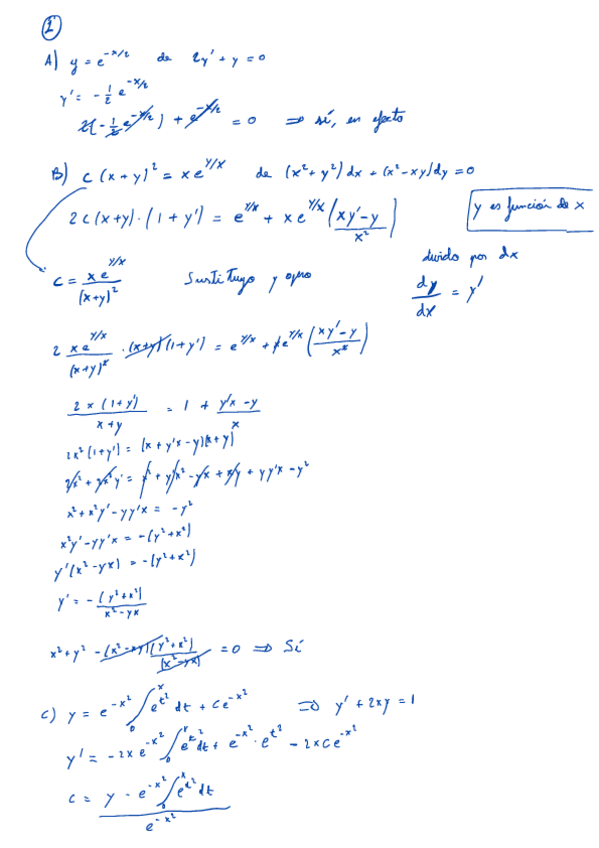 1
A) y = e^{-x/2} de 2y' + y = 0
y' = -\frac{1}{2} e^{-x/2}
2(-\frac{1}{2} e^{-x/2}) + e^{-x/2} = 0 ⇒ sí, en efecto
B) c (x + y)^2 = x e^{y/x} de (x^2 + y^2) dx + (x^2 - xy) dy = 0
2c (x+y) · (1 + y') = e^{y/x} + x e^{y/x} (\frac{xy' - y}{x^2})
y es función de x
divido por dx
c = \frac{x e^{y/x}}{(x+y)^2} Sustituyo y opero
\frac{dy}{dx} = y'
2 \frac{x e^{y/x}}{(x+y)^2} · (x+y) (1 + y') = e^{y/x} + x e^{y/x} (\frac{xy' - y}{x^2})
\frac{2x (1 + y')}{x + y} = 1 + \frac{y'x - y}{x}
2x^2 (1 + y') = (x + y'x - y)(x + y)
2x^2 + 2x^2 y' = x^2 + y'x^2 - yx + xy + yy'x - y^2
x^2 + x^2 y' - yy'x = -y^2
x^2 y' - yy'x = -(y^2 + x^2)
y' (x^2 - yx) = -(y^2 + x^2)
y' = -\frac{(y^2 + x^2)}{x^2 - yx}
x^2 + y^2 - \frac{(x^2 - xy)(y^2 + x^2)}{(x^2 - yx)} = 0 ⇒ Sí
C) y = e^{-x^2} \int_0^x e^{t^2} dt + c e^{-x^2} ⇒ y' + 2xy = 1
y' = -2x e^{-x^2} \int_0^x e^{t^2} dt + e^{-x^2} · e^{t^2} - 2x c e^{-x^2}
c = \frac{y - e^{-x^2} \int_0^x e^{t^2} dt}{e^{-x^2}}